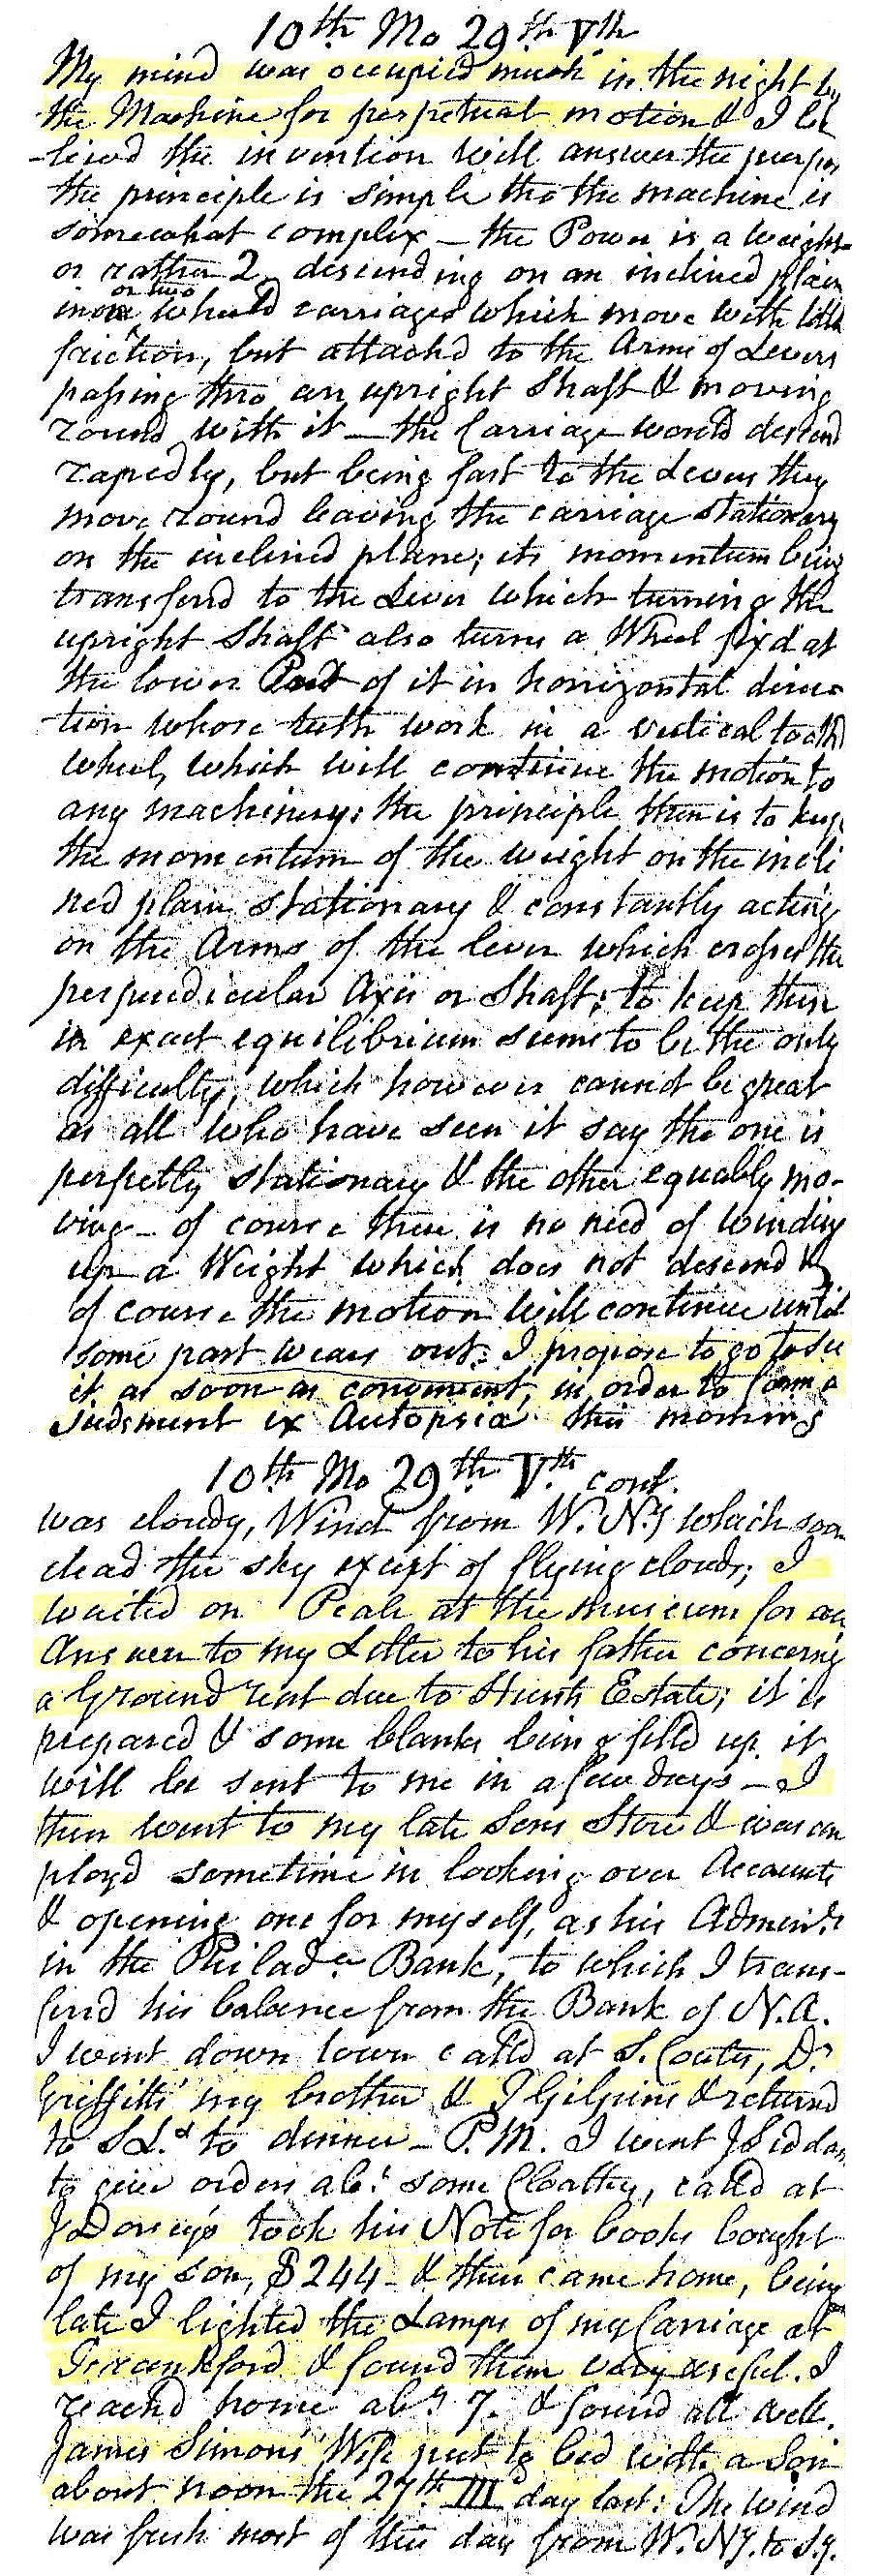 10th Mo 29th Vth
My mind was occupied much in the night by
the Machine for perpetual motion & I be
-lievd the invention will answer the purpos
the principle is simple tho the machine is
somewhat complex _ the Power is a weight
or rather 2 descending on an inclined plain
in one or two wheeld carriages which move with little
friction, but attachd to the Arms of Levers
passing thro an upright Shaft & moving
round with it _ the Carriage would descend
rapedly, but being fast to the Levers they
move round leaving the carriage stationary
on the inclined plane; its momentum being
transferd to the Lever which turning the
upright Shaft also turns a Wheel fixd at
the lower Part of it in horizontal direc
-tion whose teeth work in a vertical toothd
wheel, which will continue the motion to
any machinery: the principle then is to keep
the momentum of the weight on the incli
ned plain stationary & constantly acting
on the Arms of the lever which crosses the
perpendicular Axis or Shaft; to keep these
in exact equilibrium seems to be the only
difficulty, which however cannot be great
as all who have seen it say the one is
perfectly stationary & the other equably mo-
ving _ of course there is no need of winding
up a Weight which does not descend &
of course the motion will continue until
some part wears out: I propose to go to see
it as soon as convenient, in order to form a
Judgment ex Autopsia this morning
10th Mo 29th V.th cont.
was cloudy, Wind from W. N.y which soon
cleard the sky except of flying clouds; I
waited on Peale at the museum for an
Answer to my Letter to his father concerng
a Ground rent due to Estate; it is
prepared & some blanks being filld up it
will be sent to me in a few days _ I
then went to my late Sons Store & was em
ployd sometime in looking over Accounts
& opening one for myself, as his Adminr
in the Philada. Bank, to which I trans-
ferd his balance from the Bank of N.A.
I went down town calld at S. Coates, Dr
Griffitts' my brother & J Gilpins & returnd
to S L.d to dinner _ P.M. I went J Siddon
to give orders abt. some Cloaths, calld at
J Dorseys took his Note for books bought
of my son, $244 _ & then came home, being
late I lighted the Lamps of my Carriage at
Frankford & found them very useful. I
reachd home abt. 7. & found all well.
James Simons' Wife put to bed with a Son
about noon the 27th III day last: The wind
was fresh most of this day from W. Ny. to S.y.